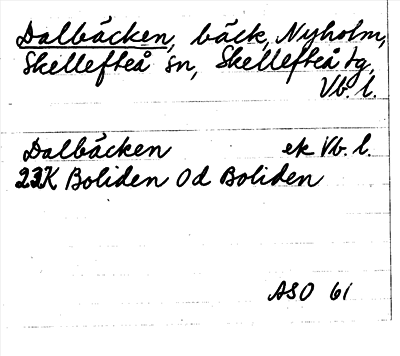 Dalbäcken, bäck, Nyholm,
Skellefteå sn, Skellefteå tg,
Vb. l.
Dalbäcken ek Vb. l.
23K Boliden 0d Boliden
ASO 61